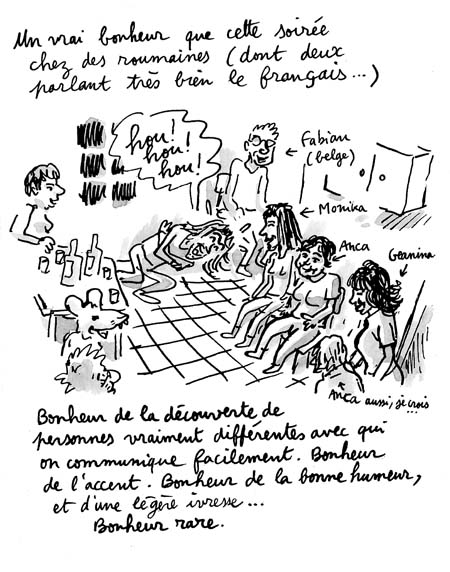 Un vrai bonheur que cette soirée
chez des roumaines (dont deux
parlant très bien le français...)
hou!
hou!
hou!
Fabian
(belge)
Monika
Anca
Geanina
Anca aussi, je crois...
Bonheur de la découverte de
personnes vraiment différentes avec qui
on communique facilement. Bonheur
de l'accent. Bonheur de la bonne humeur,
et d'une légère ivresse...
Bonheur rare.